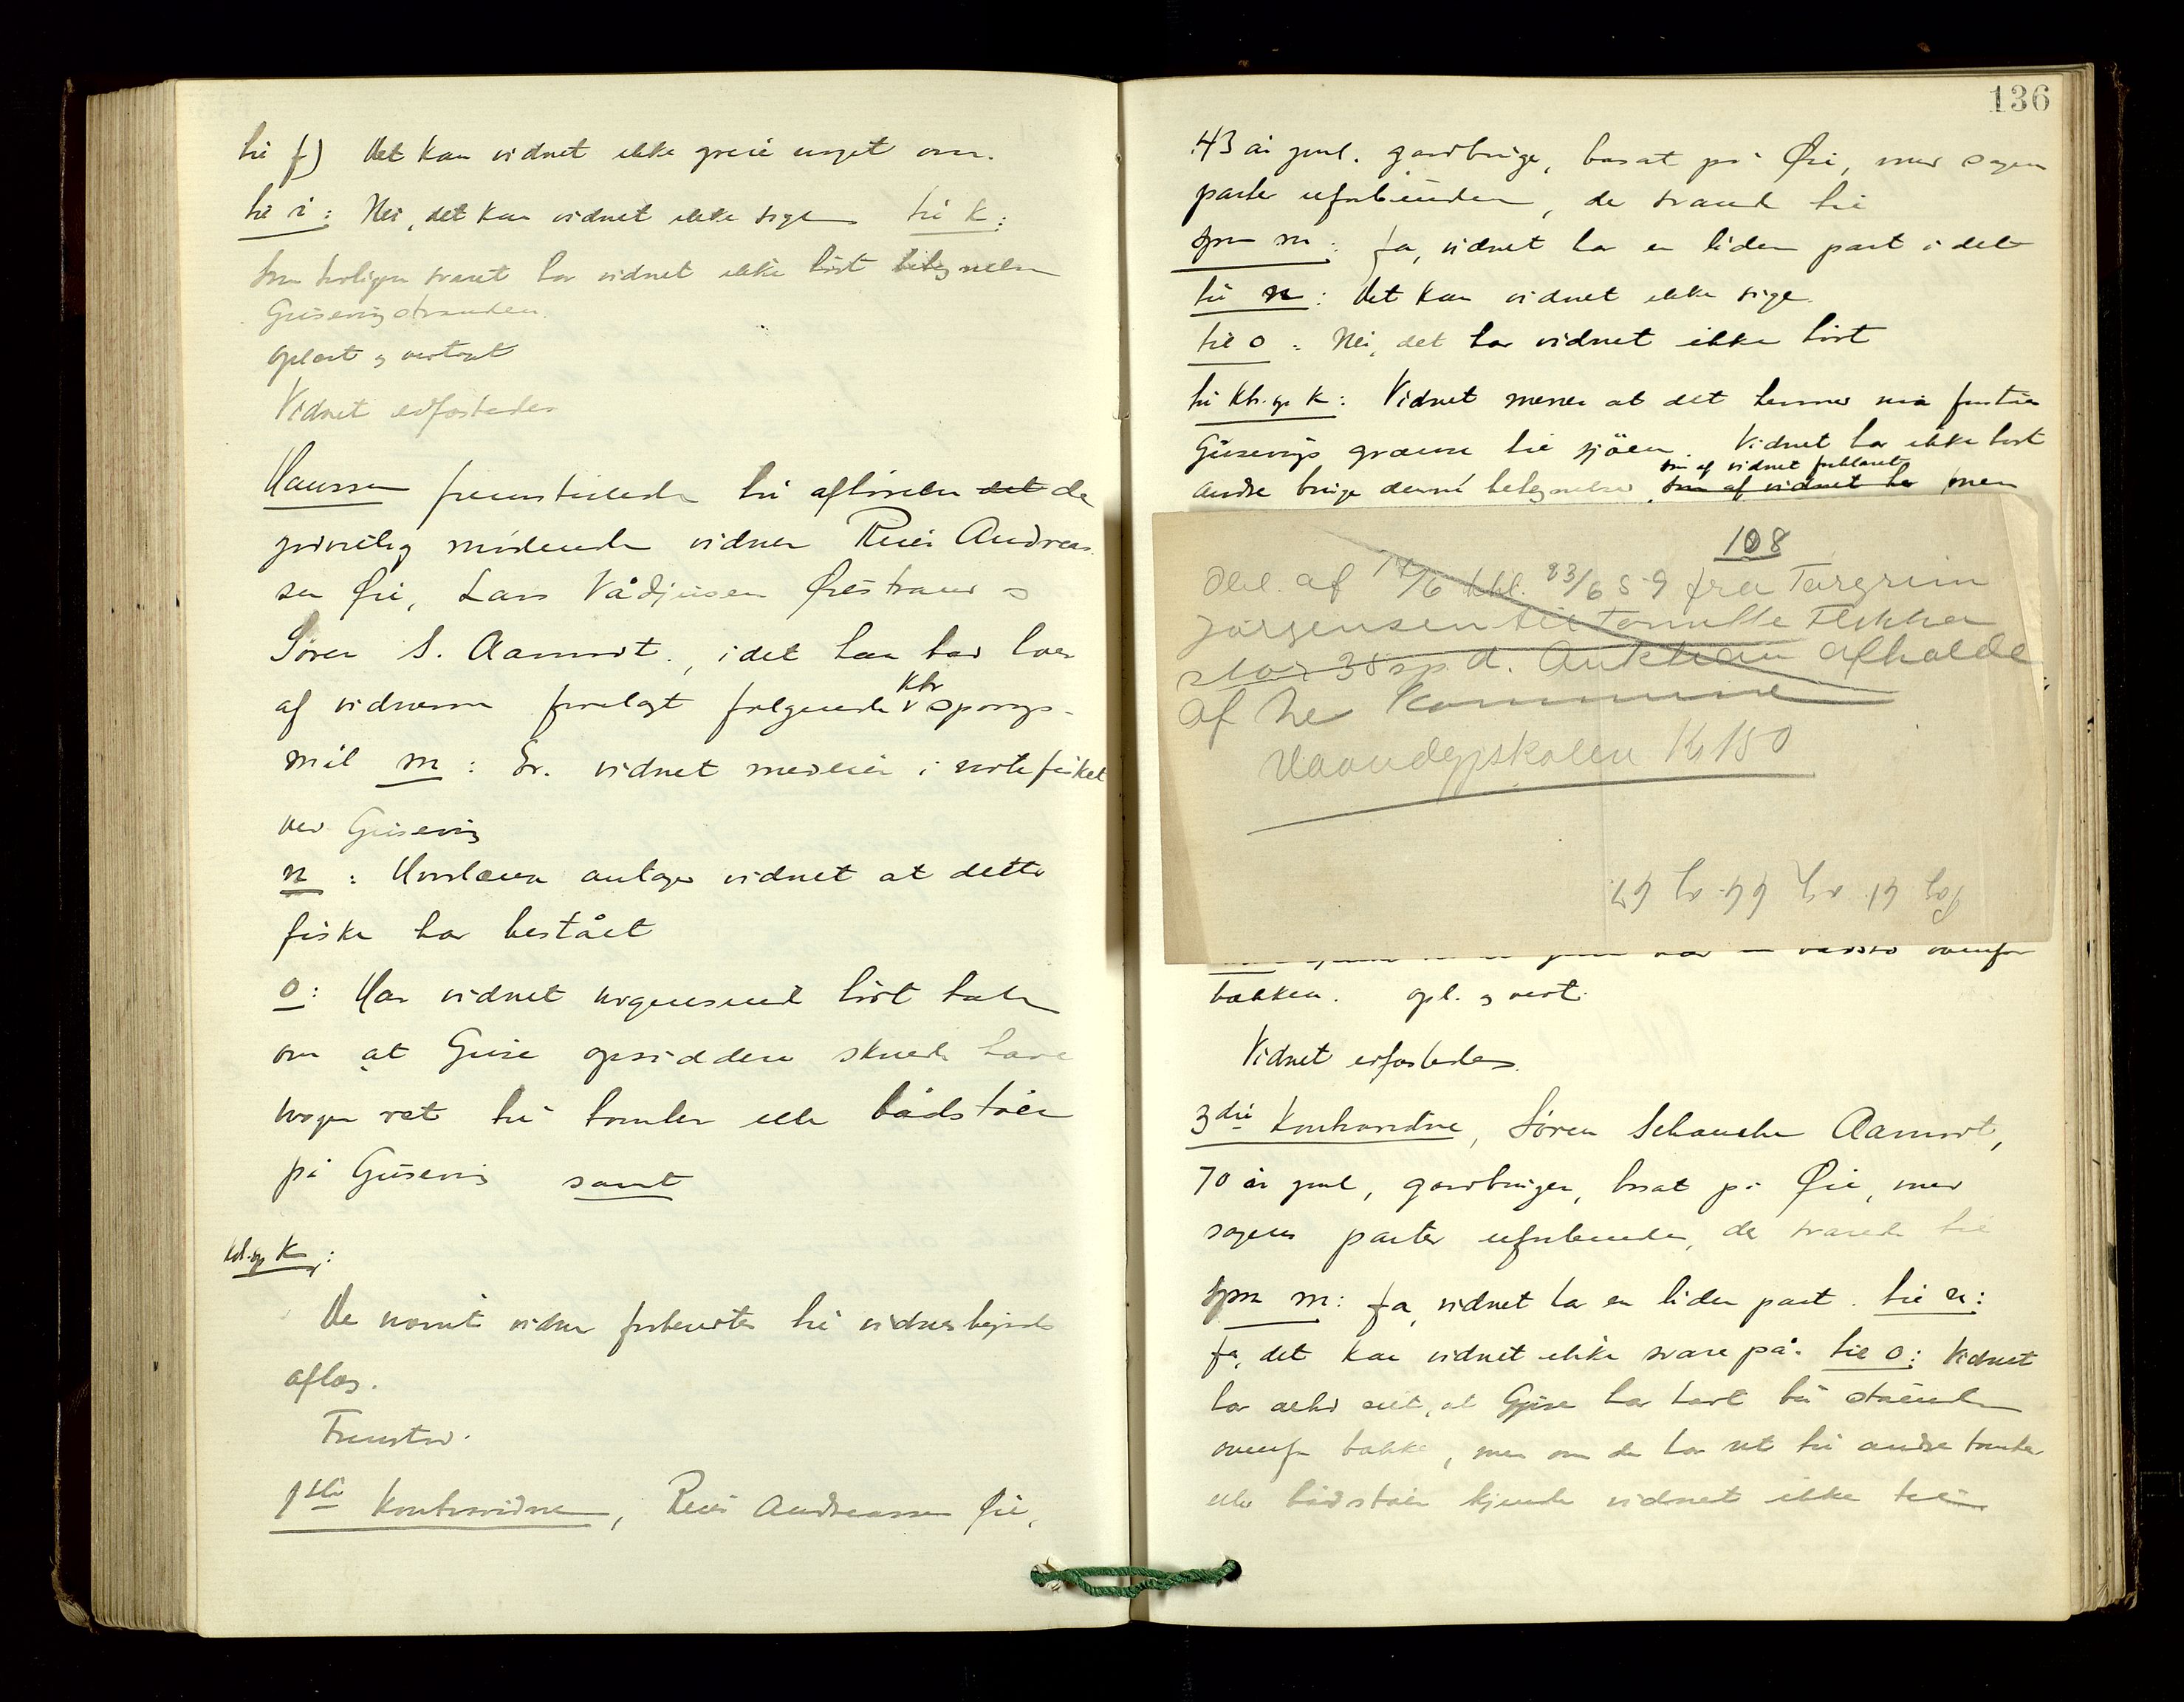 til f) Det kan vidnet ikke greie noget om.
til i: Nei, det kan vidnet ikke sige til k:
Som tidligere svaret har vidnet ikke hørt betegnelsen
Gusevigstranden
oplæst og vedtaget
Vidnet edfæstedes
Hansen fremstillede til afhørelse det de
godvillig mødende vidner Reier Andreas
sen Øie, Lars Vådjusen Øiestrand og
Søren S. Aamodt., idet han bad hver
af vidnerne forelagt følgende Ktr spørgs-
mål m: Er vidnet medeier i notefisket
ved Gusevig
n: Hvorlænge antager vidnet at dette
fiske har bestået
o: Har vidnet nogensinde hørt tale
om at Guse opsiddere skulde have
nogen ret til tomter eller bådstøer
på Gusevig samt
ktr.sp K:
De nævnte vidner forberedtes til vidnesbyrds
aflæg.
Fremstod.
1ste Kontravidne, Reier Andreassen Øie,
136
43 år gml. gardbruger, bosat på Øie, med sagens
parter uforbunden, der svarede til
spm m: Ja, vidnet har en liden part i det
til n: Det kan vidnet ikke sige.
til o: Nei, det har vidnet ikke hørt
til ktr.sp K: Vidnet mener at det hermed må forståes
Gusevigs grænse til sjöen. Vidnet har ikke hørt
som af vidnet forklaret
andre bruge denne betegnelse, som af vidnet her men
108
Obl. af 14/6 thl. 23/6 59 fra Targrim
Jørgensen til Tomille Flikka
stor 38 sp.d. Auktion afholdt
af he Kommune
Vaandegjskolen Kr 150
Log 61 og 64 og 67.
ovenfor
bakken. opl. og vedt.
Vidnet edfæstedes.
3die Kontravidne, Søren Schanche Aamodt,
70 år gml, gardbruger, bosat på Øie, med
sagens parter uforbunden, der svarede til
spm m: Ja, vidnet har en liden part. til n:
Ja, det kan vidnet ikke svare på. til o: Vidnet
har altid set, at Gjuse har havt til støende
ovenfor bakke, men om de har ret til andre tomter
eller bådstøer kjender vidnet ikke til